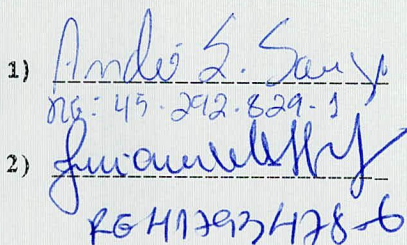 1) André S.
RG: 45.292.829-1
2)
RG 41793478-6